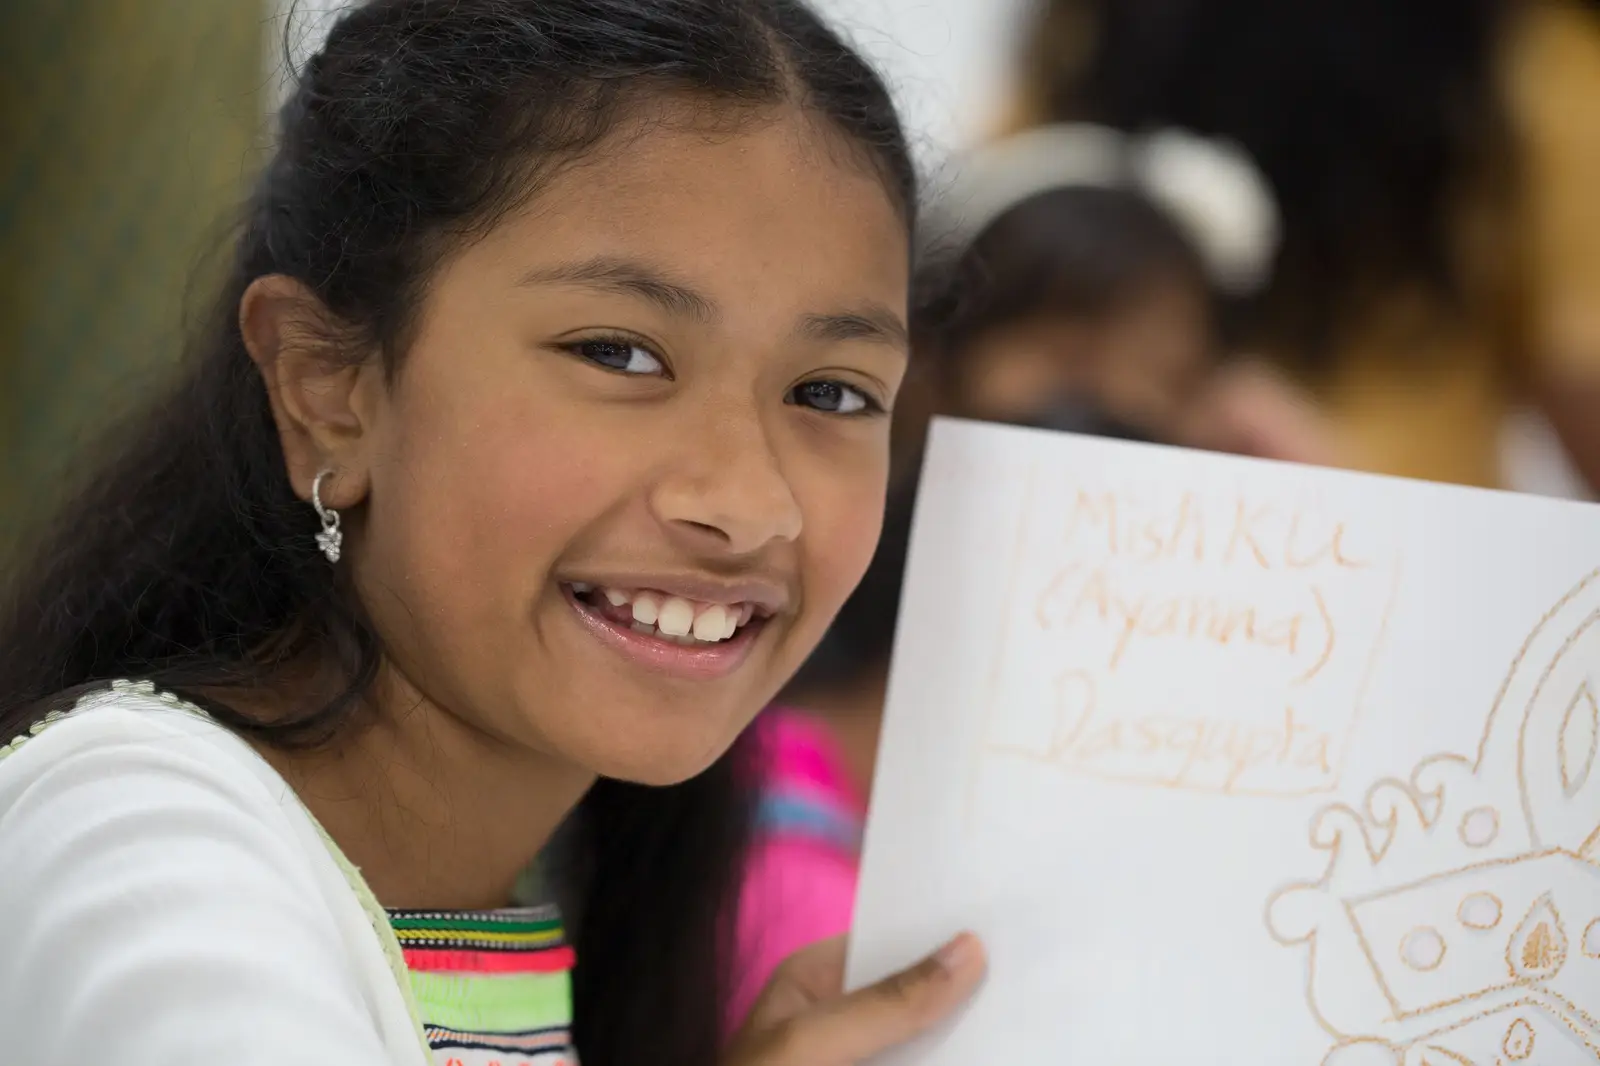 Mishku
(Ayanna)
Dasgupta